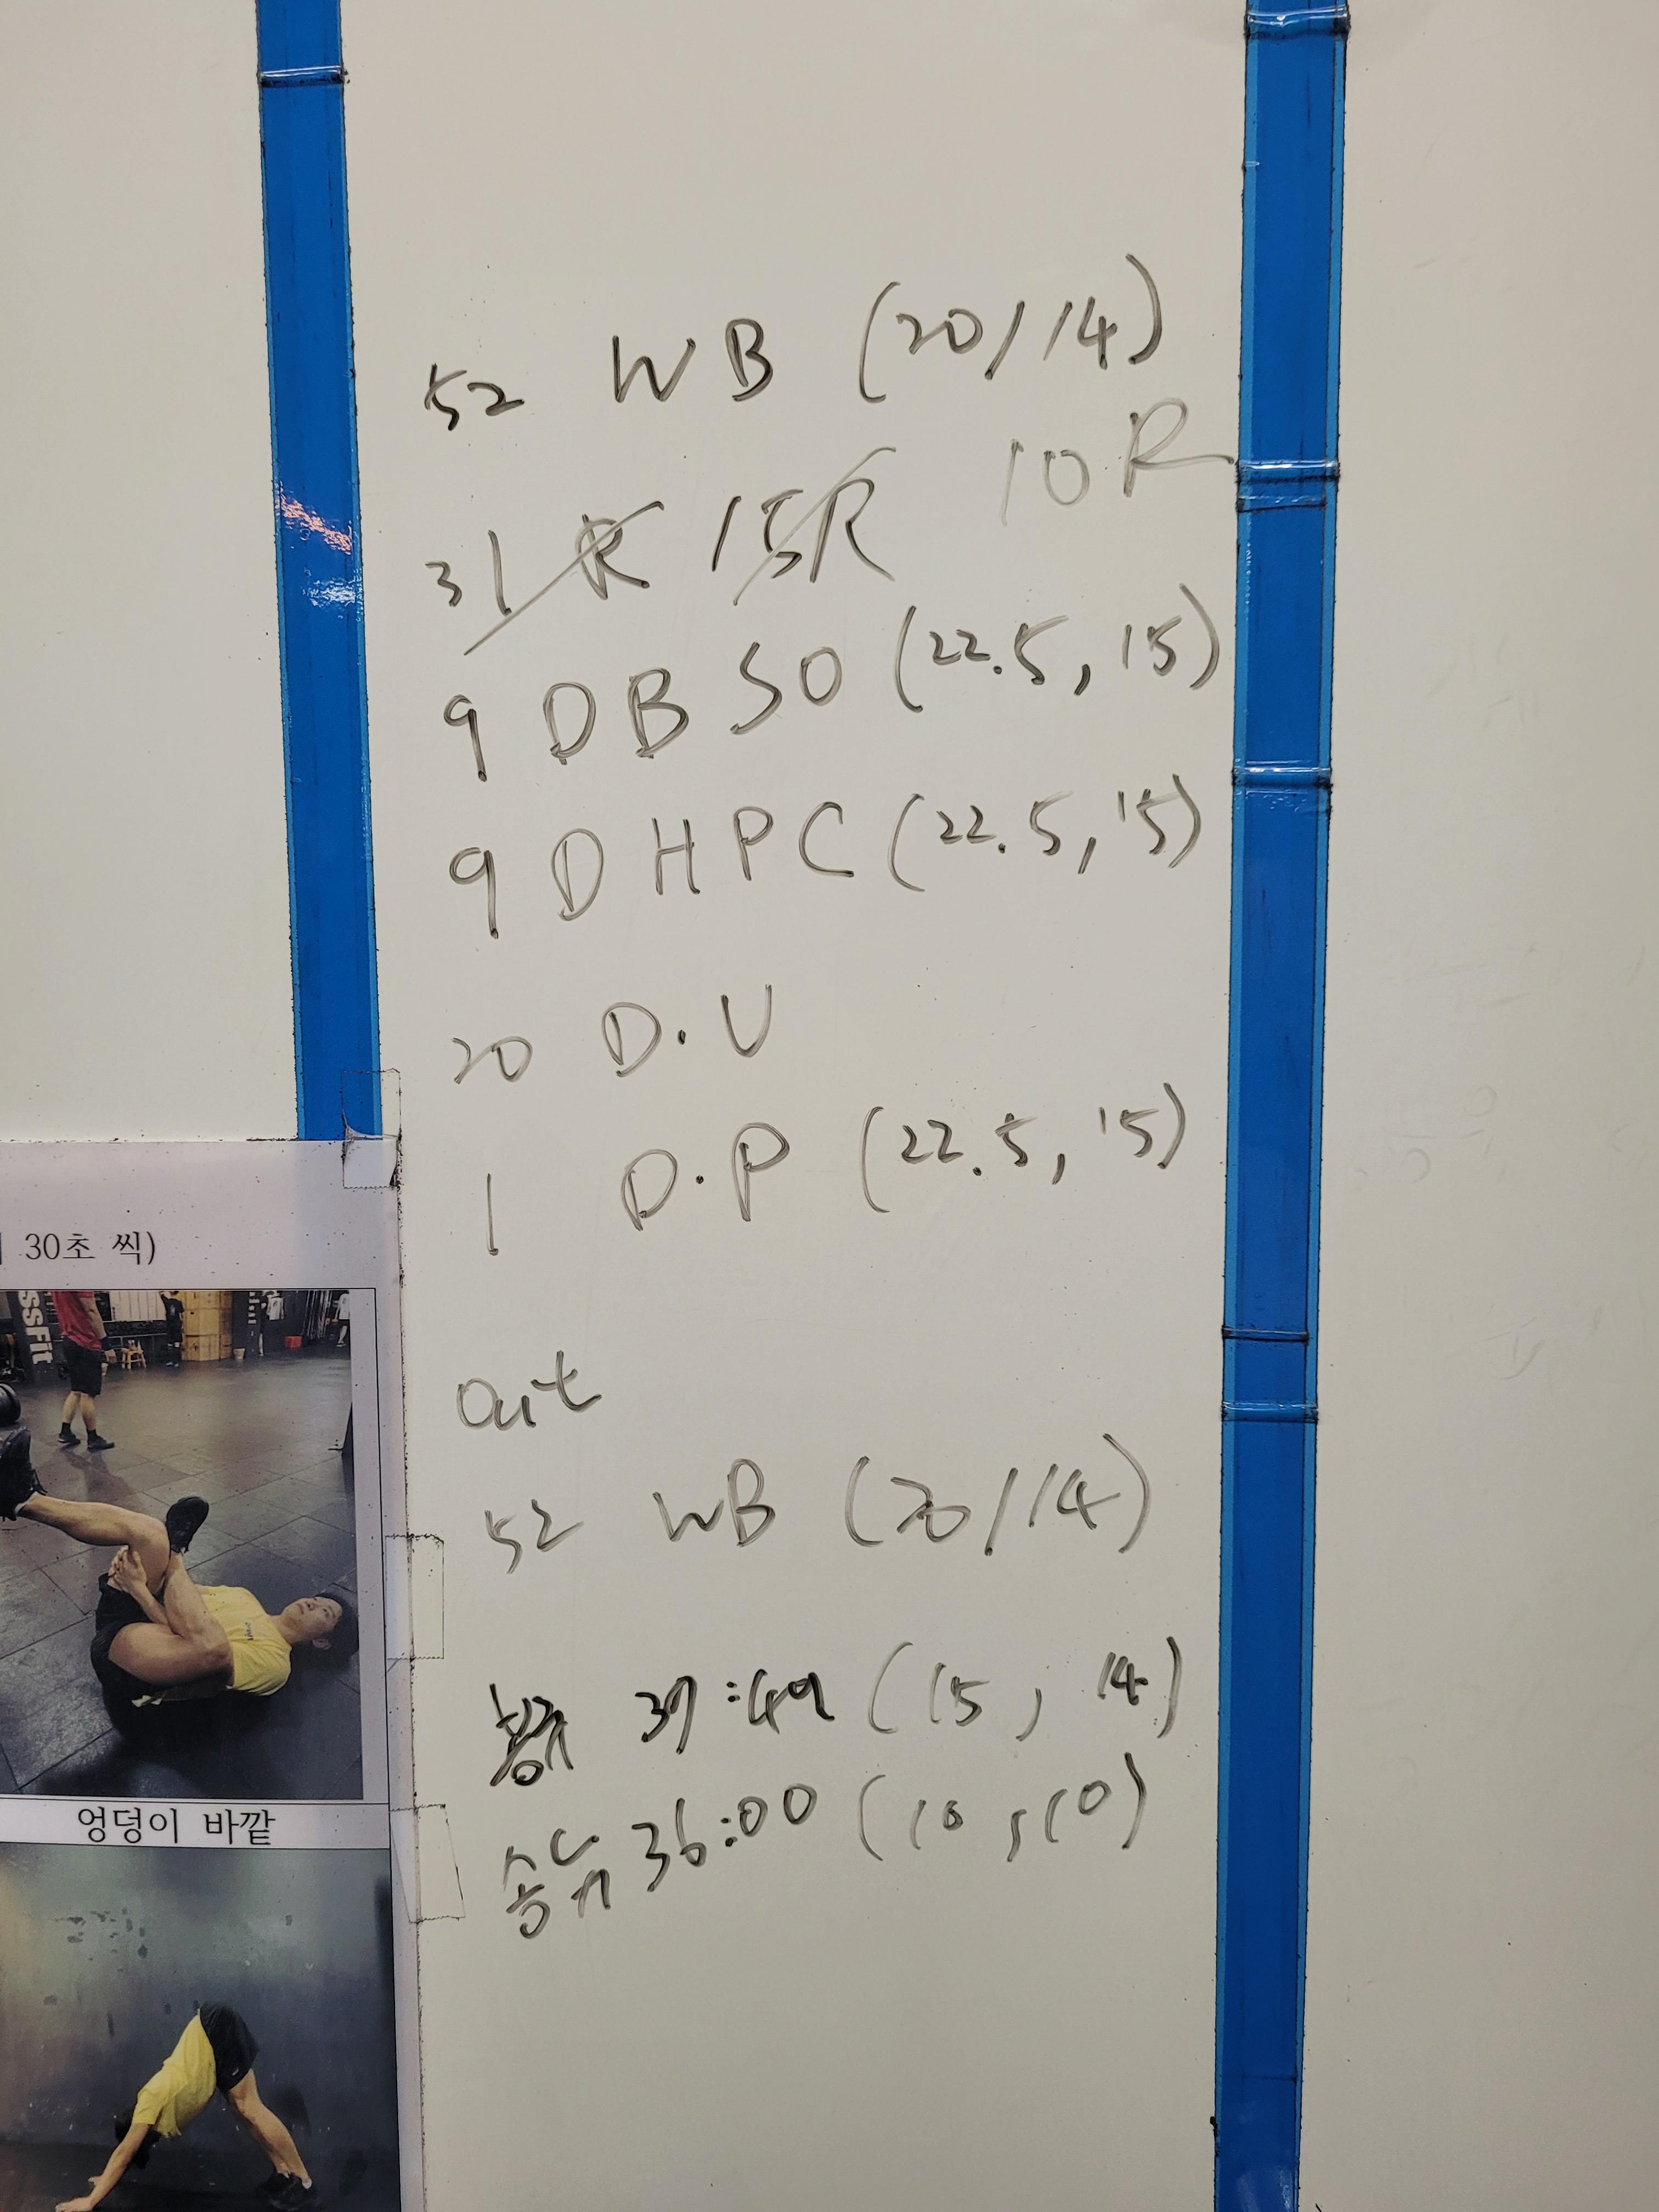 52 WB (20/14)
31 R 15R 10R
9 DB SO (22.5, 15)
9 DHPC (22.5, 15)
20 D.U
1 D.P (22.5, 15)
out
52 WB (20/14)
37:49 (15, 14)
36:00 (10, 10)
30초 씩)
ssFit
엉덩이 바깥